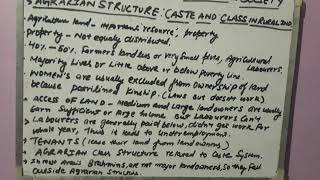 SOCIETY
AGRARIAN STRUCTURE: CASTE AND CLASS IN RURAL IND
Agriculture land - important resource, property
property - Not equally distributed.
40% - 50% Farmers landless or very small fives, Agricultural
Labourers.
Majority lives or little above or below poverty line.
Women's are usually excluded from ownership of land
because patrilineal kinship. (Laws but doesn't work)
Access of LAND - Medium and large landowners are usually
Earn sufficient or large Income but Labourers Can't
Labourers are generally paid below, didn't get work for
whole year, Thus it leads to underemployment.
TENANTS (lease their land from landowners)
AGRARIAN CLASS STRUCTURE related to Caste System.
In most Areas Brahmins, are not major landowners, so they fall
outside agrarian structure